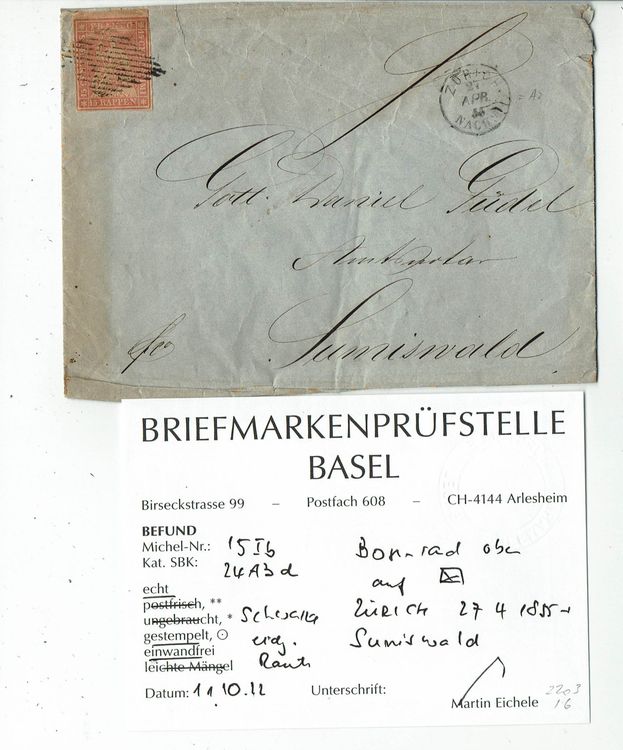 FRANCO
15 RAPPEN
ZÜRICH
27
APR.
55
NACHM
= A3
Gott. Daniel Güdel
Amtsnotar
fco
Sumiswald
BRIEFMARKENPRÜFSTELLE
BASEL
Birseckstrasse 99 – Postfach 608 – CH-4144 Arlesheim
BEFUND
Michel-Nr.: 15 II b
Kat. SBK: 24 A3 d
echt
postfrisch, **
ungebraucht, *
gestempelt, ⊙
einwandfrei
leichte Mängel
Schwarze
eidg.
Raute
oben
auf ✉
ZÜRICH 27 4 1855 →
Sumiswald
Datum: 11 10.22 Unterschrift:
Martin Eichele
2203
16